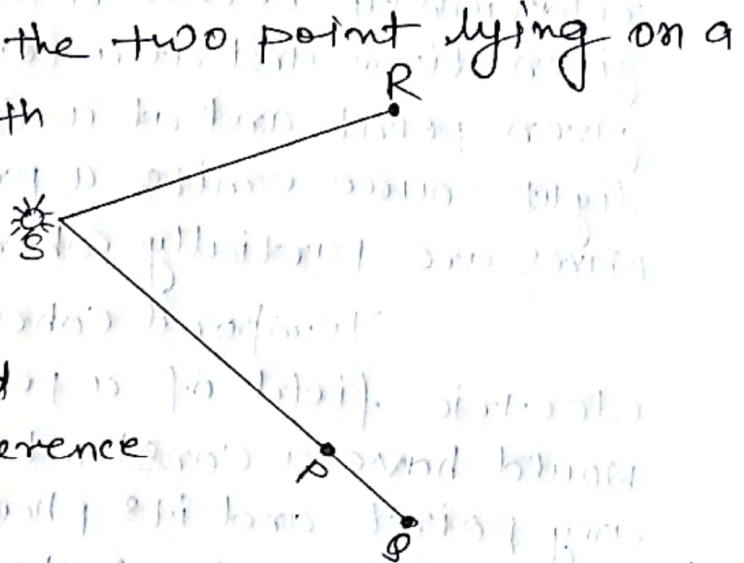 the two point lying on a
R
th
S
erence
P
Q